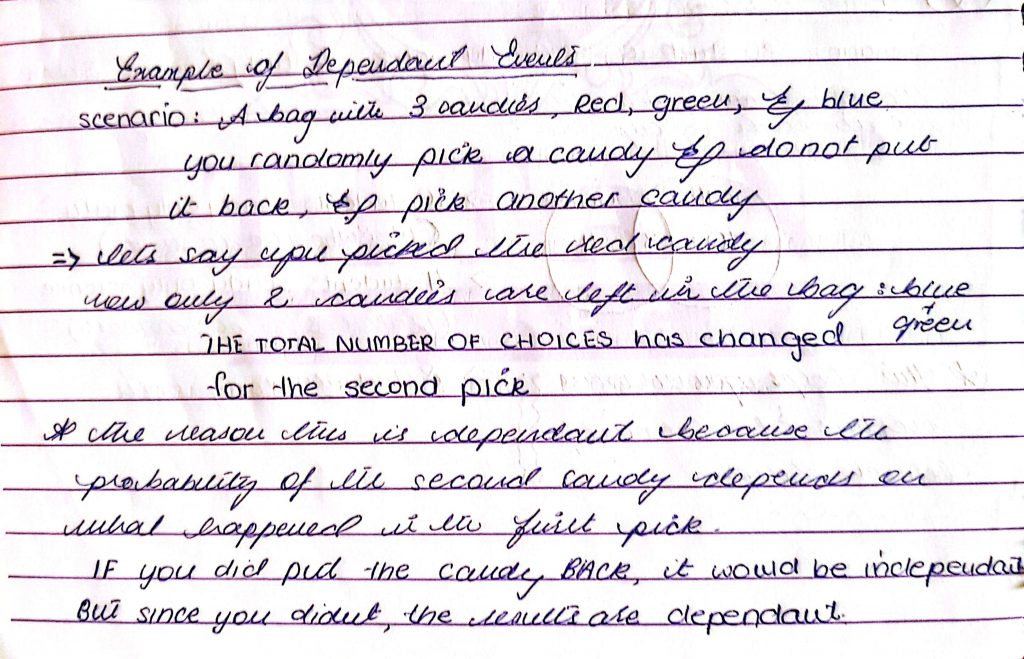 Example of Dependant Events
scenario: A bag with 3 candies, Red, green, & blue
you randomly pick a candy & donot put
it back, & pick another candy
=> lets say you picked the red candy
now only 2 candies are left in the bag : blue
+ green
THE TOTAL NUMBER OF CHOICES has changed
for the second pick
* the reason this is dependant because the
probability of the second candy depends on
what happened in the first pick.
IF you did put the candy BACK, it would be independant
But since you didnt, the results are dependant.